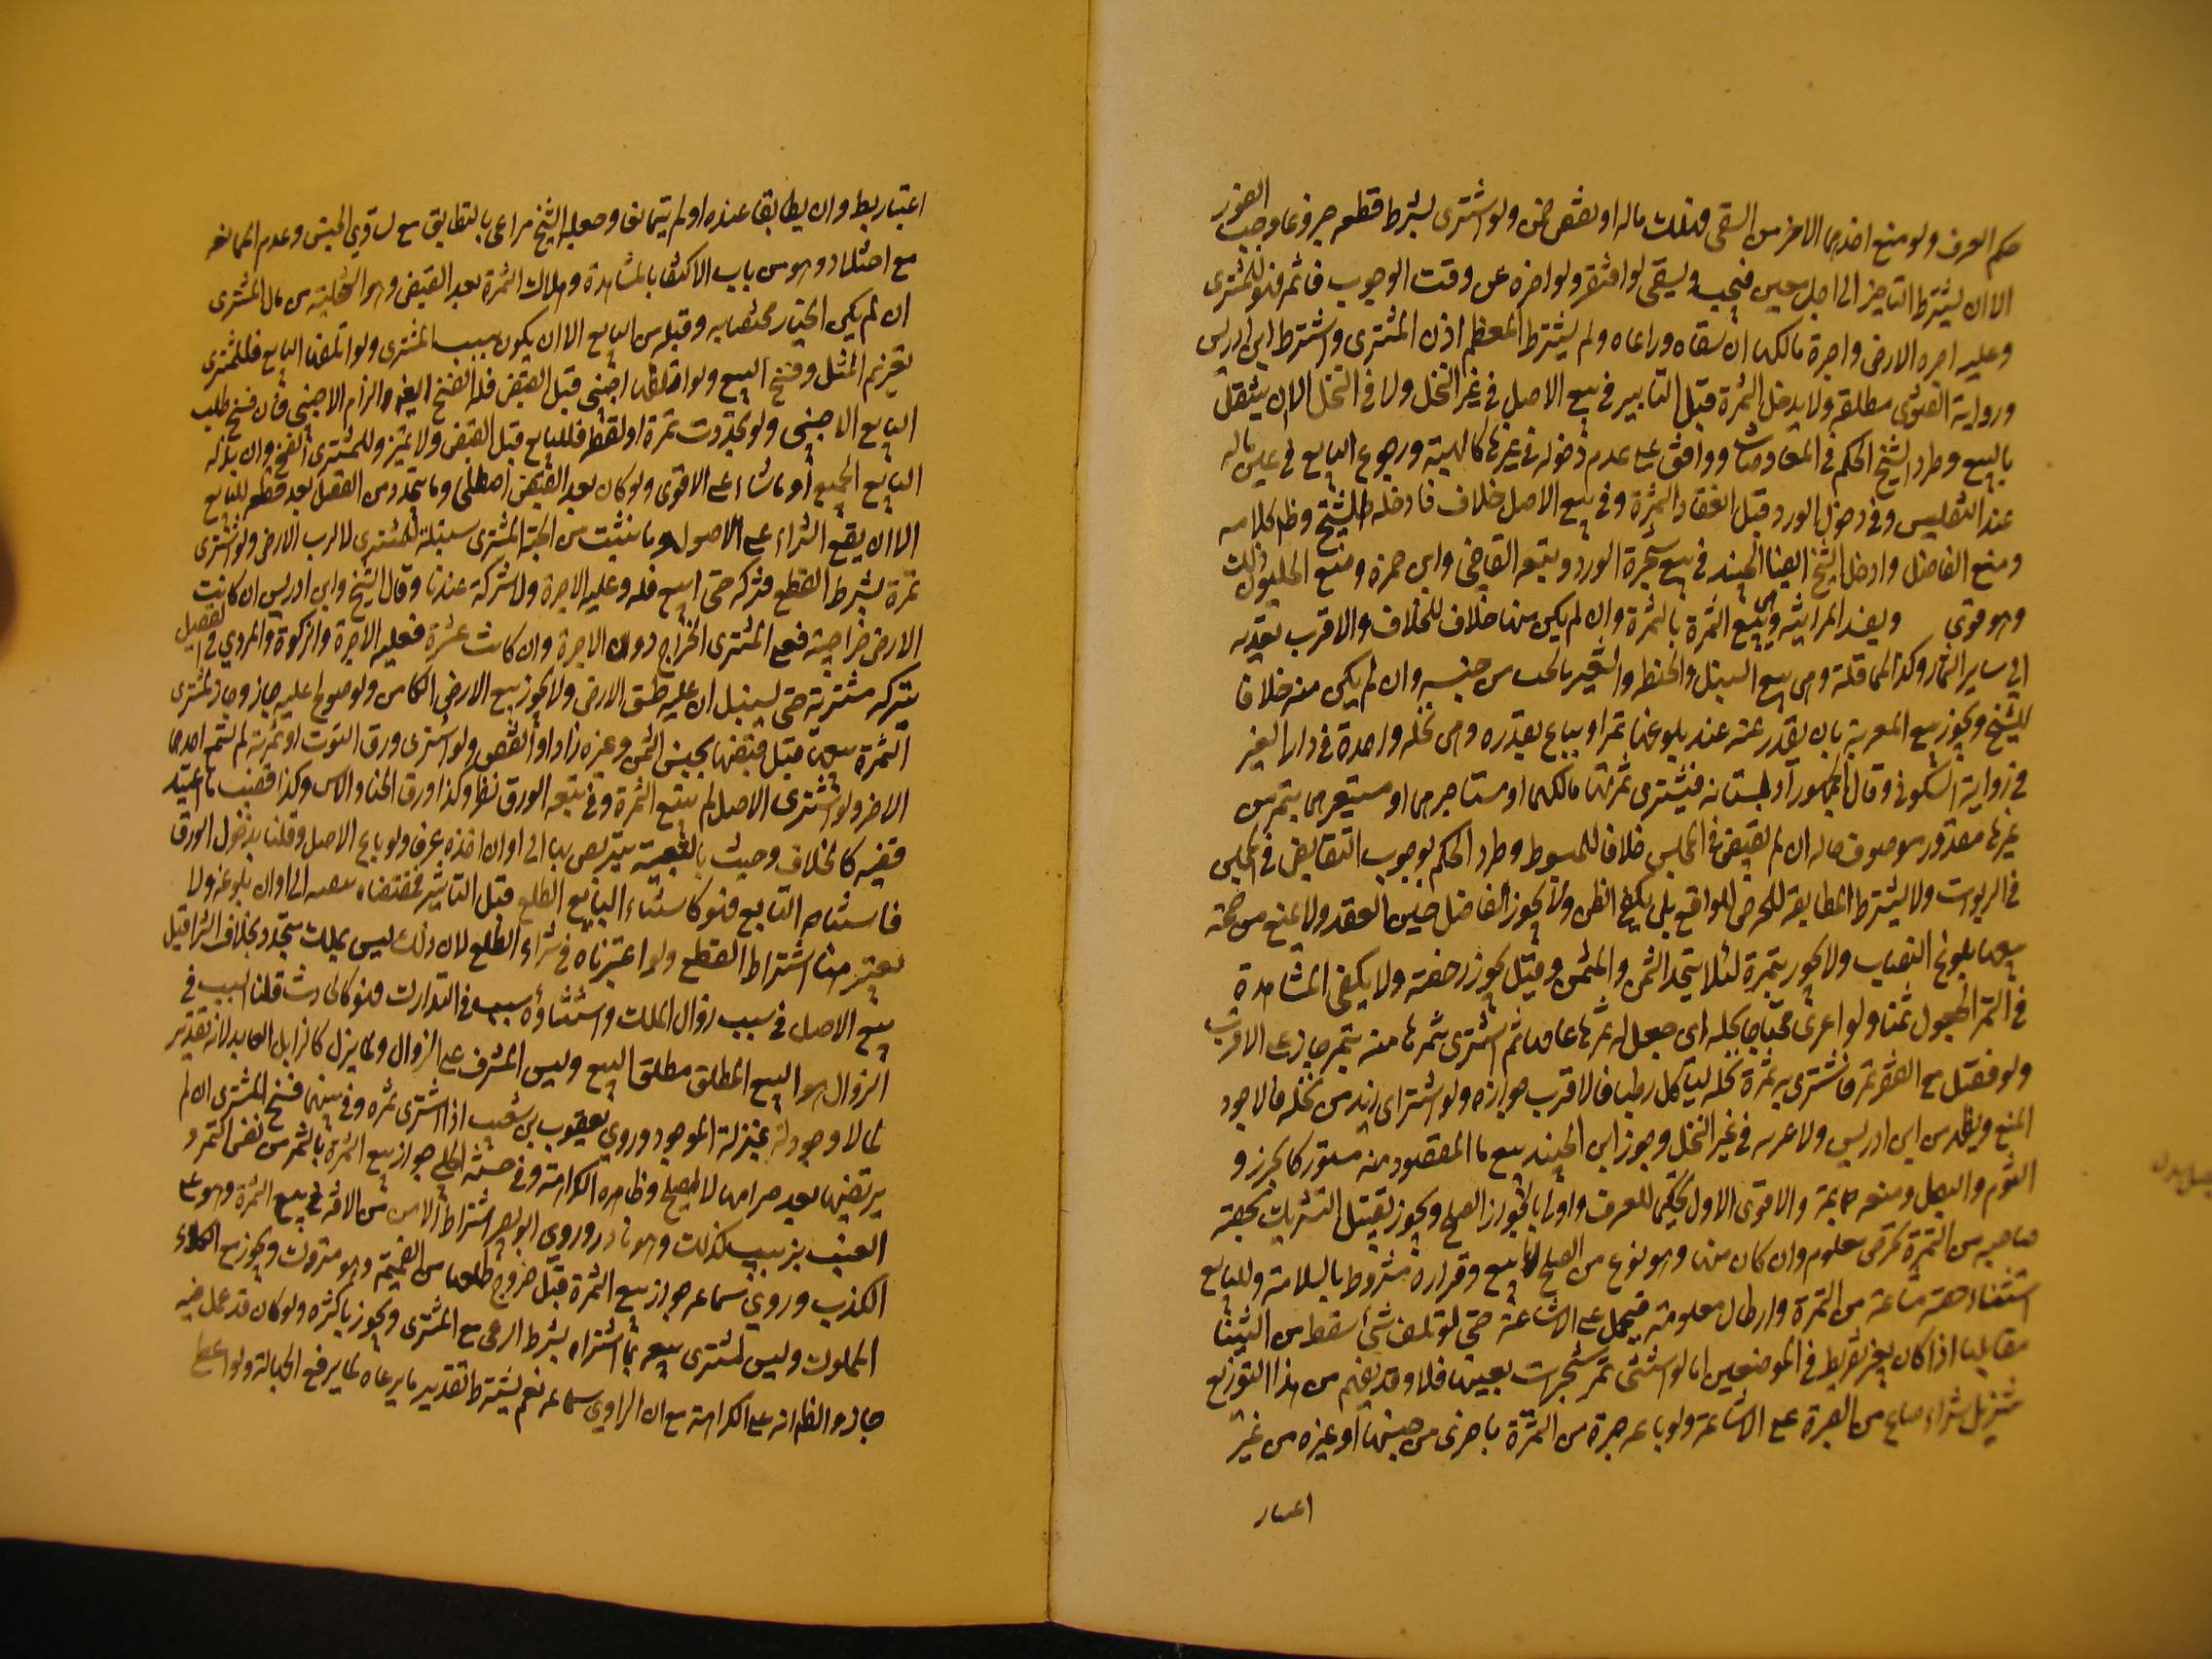 حكم العرف ولو منع احدهما الاخر من السقى فتلف ماله او نقص ضمن ولو اشترى بشرط قطعه جزء فجزء وجب الفور
الا ان يشترط التاخير الى اجل معين فيجب ويسقى لو افتقر ولو اخره عن وقت الوجوب فاثمر فهو للمشترى
وعليه اجره الارض واجرة مالكها ان سقاه وراعاه ولم يشترط المعظم اذن المشترى واشترط ابن ادريس
ورواية مطلقه ولا يدخل الثمرة قبل التابير فى بيع الاصل فى غير النخل ولا فى النخل الا ان ينتقل
بالبيع وطرد الشيخ الحكم فى المعاوضات ووافق على عدم دخوله فى غيرها كالهبة ورجوع البايع فى عين ماله
عند التفليس وفى دخول الورد قبل انعقاد الثمرة وفى بيع الاصل خلاف فادخله الشيخ وظ كلامه
ومنع الفاضل وادخل الشيخ ايضا الجنبذ فى بيع شجرة الورد وتبعه القاضى وابن حمزه ومنع الحليون ذلك
وهو قوى ويفسد المزابنه وهى بيع الثمرة بالثمرة وان لم يكن منها خلاف للخلاف والاقرب تعديه
الى ساير الثمار وكذا المحاقلة وهى بيع السنبل والحنطه والشعير بالحب من جنسه وان لم يكن منه خلافا
للشيخ ويجوز بيع العرية بان يقدر عند بلوغها تمرا ويباع بقدره وهى نخله واحدة فى دار الغير
فى رواية السكونى وقال الجمهور او بستانه فيشترى ثمرتها مالكها او مستاجرها او مستعيرها بتمر من
غيرها مقدور موصوف حاله ان لم يقبض فى المجلس خلافا للمبسوط وطرد الحكم بوجوب التقابض فى المجلس
فى الربوات ولا يشترط المطابقة للخرص للواقع بل يكفى الظن ولا يجوز التفاضل حين العقد ولا يمنع من صحة
بيعها بلوغ النصاب ولا يجوز بتمرة لئلا يتحد الثمن والمثمن وقيل يجوز رخصة ولا يكفى المشاهدة
فى التمر المجعول ثمنا ولو اعرى محتاجا نخله اى جعل له ثمرها عاما ثم اشترى ثمرها منه بتمر جاز على الاقرب
ولو فضل مع الفقير تمر فاشترى به ثمرة نخله لياكل رطبا فالاقرب جوازه ولو اشترى ازيد من نخله فالاجود
المنع ويظهر من ابن ادريس ولا عريه فى غير النخل وجوز ابن الجنيد بيع ما المقصود منه مستور كالجزر و
الثوم والبصل ومنعه جماعة والاقوى الاول تحكيما للعرف واولى بالجواز الصلح ويجوز تقبيل الشريك بحصة
صاحبه من الثمرة بخرص معلوم وان كان منها وهو نوع من الصلح لا بيع وقراره مشروط بالسلامة وللبايع
استثناء حصة مشاعة من الثمرة وارطال معلومة فيحمل على الاشاعة حتى لو تلف شئ سقط من الثنيا
مقابلها اذا كان بغير تفريط فى الموضعين اما لو استثنى ثمر شجرات بعينها فلا وقد يفهم من هذا التوزيع
تنزيل شراء صاع من الصبرة على الاشاعة ولو باع صبرة من الثمرة باخرى من جنسها او غيره من غير
اعتبار
اعتبار بطل وان يطابقا عنده او لم يتمانعا وجعله الشيخ مراعى بالتطابق مع تساوى الجنس وعدم الممانعه
مع اختلافه وهو من باب الاكتفاء بالمشاهدة وهلاك الثمرة بعد القبض وهو التخلية من مال المشترى
ان لم يكن الخيار مختصا به وقبله من البايع الا ان يكون بسبب المشترى ولو اتلفها البايع فللمشترى
تغريم المثل وفسخ البيع ولو اتلفها اجنبى قبل القبض فله الفسخ ايضا والزام الاجنبى فان فسخ طلب
البايع الاجنبى ولو تجددت ثمرة او لقطة للبايع قبل القبض ولا تميز وللمشترى الفسخ وان بذل له
البايع الجميع او ما شاء على الاقوى ولو كان بعد القبض اصطلحا وما يتجدد من القصيل بعد قطعه للبايع
الا ان يقع الشراء على الاصول وما ينبت من الحبة المشترى سنبلة للمشترى لا لرب الارض ولو اشترى
ثمرة بشرط القطع فتركه حتى اينع فله وعليه الاجرة ولا شركة عندنا وقال الشيخ وابن ادريس ان كانت
الارض خراجية فعلى المشترى الخراج دون الاجرة وان كانت عشرة فعليه الاجرة والزكوة والمروى فى القصيل
يتركه مشتريه حتى يسنبل ان عليه طسق الارض ولا يجوز بيع الارض ولو صولح عليه جاز وجاز لمشترى
الثمرة بيعها قبل قبضها بجنس الثمن وغيره زاد او نقص ولو اشترى ورق التوت او ثمرته لم يتبع احدهما
الاخر ولو اشترى الاصل لم يتبع الثمرة وفى تبعيه الورق نظر وكذا ورق الحناء والاس وكذا قضيب ما اعتيد
قضبه كالخلاف وحيث بالتبعيه يتربص بها الى اوان اخذه عرفا ولو باع الاصل وقلنا بدخول الورق
فاستثناه البايع فهو كاستثناء البايع الطلع قبل التابير فمقتضاه تبقيته الى اوان بلوغه ولا
يعتبر هنا اشتراط القطع ولو اعتبرناه فى شراء الطلع لان ذلك ليس بملك متجدد بخلاف الشراء قيل
بيع الاصل فى سبب زوال الملك واستثناؤه سبب فى التدارك فهو كالحادث قلنا السبب فى
الزوال هو البيع المطلق لا مطلق البيع وليس المشرف على الزوال ولما يزل كالزايل العايد لانه تقدير
لما لا وجود له بمنزلة الموجود وروى يعقوب بن شعيب اذا اشترى ثمره وفى نيته فسخ المشترى ان لم
يرتضها بعد صرامها لا يصلح وظاهره الكراهة وفى حسنة الحلبى جواز بيع الثمرة بالثمر من نفس الثمر و
العنب بزبيب كذلك وهو نادر وروى ابو بصير اشتراط الامن من الافة فى بيع الثمرة وهو على
الندب وروى سماعه جواز بيع الثمرة قبل خروج طلعها مع الضميمة وهو متروك ويجوز بيع الكلاء
المملوك وليس لمشترى بيعه بما اشتراه بشرط الرعى مع المشترى ويجوز باكثره ولو كان قد عمل فيه
جاز والظ انه على الكراهة مع ان الراوى سماعه نعم يشترط تقدير ما يرعاه لما يرفع الجهالة ولو اعطى